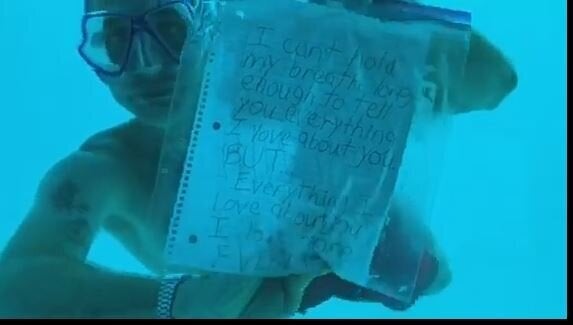 I can't hold
my breath long
enough to tell
you everything
I love about you
BUT...
Everything I
love about you
I love more
Every